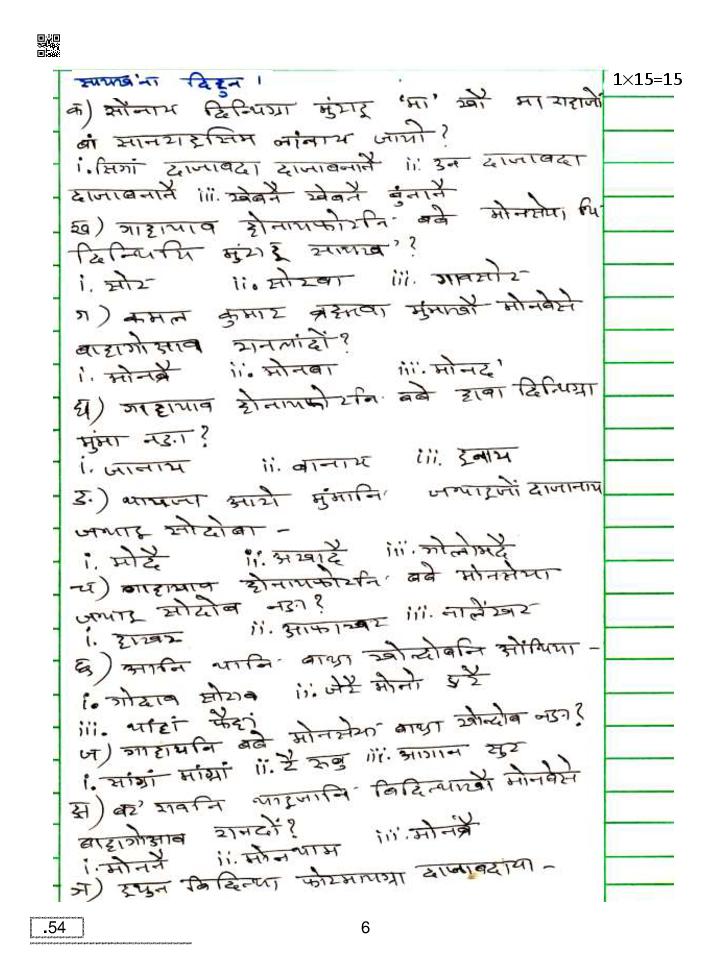 सायख'ना दिहुन ।
1×15=15
क) सोंनाय दिन्थिग्रा मुंराइ 'मा' खौ मा राहाजों
बां सानराइसिम नांनाय जायो?
i. सिगां दाजाबदा दाजाबनानै ii. उन दाजाबदा
दाजाबनानै iii. खेबनै खेबनै बुंनानै
ख) गाहायाव होनायफोरनि बबे मोनसेया थि
दिन्थिथि मुंराइ सायख'?
i. सोर ii. सोरबा iii. गावसोर
ग) कमल कुमार ब्रह्मआ मुंमाखौ मोनबेसे
बाहागोआव रानलांदों?
i. मोनब्रै ii. मोनबा iii. मोनद'
घ) गाहायाव होनायफोरनि बबे हाबा दिन्थिग्रा
मुंमा नङा?
i. जानाय ii. बानाय iii. इनाय
ङ) थायजा आरो मुंमानि जथाइजों दाजानाय
जथाइ सोदोबा –
i. मोदै ii. अखादै iii. गोलोमदै
च) गाहायाव होनायफोरनि बबे मोनसेया
जथाइ सोदोब नङा?
i. हाखर ii. आफाखर iii. नालेंखर
छ) आनि थानि बाथ्रा खोन्दोबनि ओंथिया –
i. गोदाव सोराव ii. जेरै मोनो एरै
iii. थांहां फैहां
ज) गाहायनि बबे मोनसेया बाथ्रा खोन्दोब नङा?
i. सांग्रां मांग्रां ii. रै रुबु iii. आगान सुर
झ) बर' रावनि थाइजानि बिदिन्थाखौ मोनबेसे
बाहागोआव रानदों?
i. मोननै ii. मोनथाम iii. मोनब्रै
ञ) इयुन बिदिन्था फोरमायग्रा दाजाबदाया –
.54
6